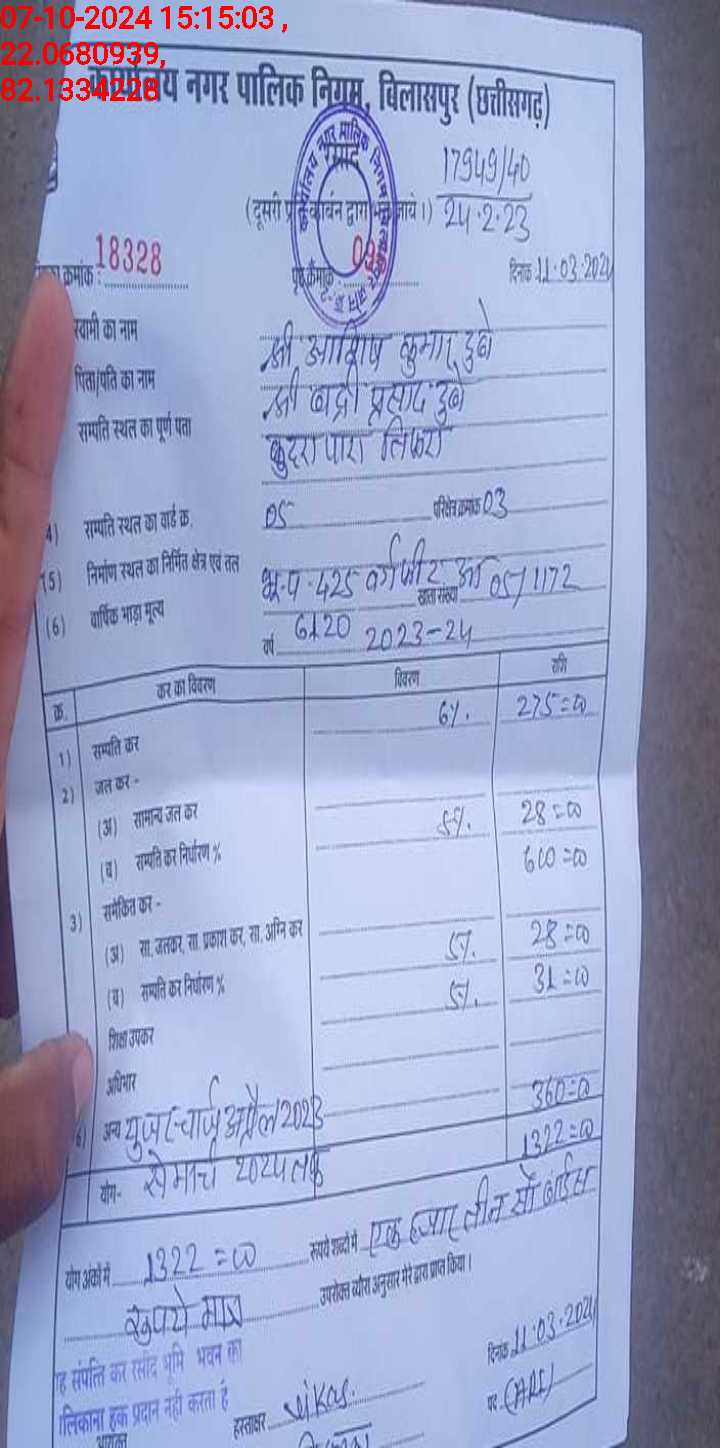 07-10-2024 15:15:03 ,
22.0680939,
82.1334228
कार्यालय नगर पालिक निगम, बिलासपुर (छत्तीसगढ़)
रसीद
17949/40
(दूसरी प्रति कार्बन द्वारा भरी जाये।) 24.2.23
क्रमांक : 18328 पृष्ठ क्रमांक : 09 दिनांक 11.03.2024
स्वामी का नाम श्री आशिष कुमार दुबे
पिता/पति का नाम श्री बद्री प्रसाद दुबे
सम्पति स्थल का पूर्ण पता कुदरा पारा तिफरा
4) सम्पति स्थल का वार्ड क्र. 05 परिक्षेत्र क्रमांक 03
(5) निर्माण स्थल का निर्मित क्षेत्र एवं तल भू.प. 425 वर्गफीट
(6) वार्षिक भाड़ा मूल्य 6120 खाता संख्या 05/1172
वर्ष 2023-24
क्र. कर का विवरण विवरण राशि
1) सम्पति कर 6%. 275=00
2) जल कर -
(अ) सामान्य जल कर 5%. 28=00
(ब) सम्पति कर निर्धारण % 600=00
3) समेकित कर -
(अ) सा. जलकर, सा. प्रकाश कर, सा. अग्नि कर 5%. 28=00
(ब) सम्पति कर निर्धारण % 5%. 31=00
शिक्षा उपकर
अधिभार
6) अन्य युजर चार्ज अप्रैल 2023 360=00
योग- से मार्च 2024 तक 1322=00
योग अंको में 1322=00 रूपये शब्दों में एक हजार तीन सौ बाईस
रुपये मात्र उपरोक्त ब्यौरा अनुसार मेरे द्वारा प्राप्त किया।
यह संपत्ति कर रसीद भूमि भवन का दिनांक 11.03.2024
मालिकाना हक प्रदान नहीं करता है हस्ताक्षर Vikas. पद (ARI)
आयुक्त